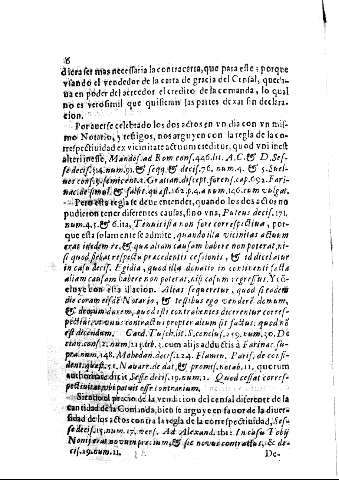 6
diera ser mas necessaria la contracarta, que para este: porque
viando el vendedor de la carta de gracia del Censal, queda-
ua en poder del acreedor el credito de la comanda, lo qual
no es verosimil que quisieran las partes dexar sin declara-
cion.
Por auerse celebrado los dos actos en vn dia con vn mis-
mo Notario, y testigos, nos arguyen con la regla de la cor-
respectiuidad ex vicinitate actuum creditur, quod vni inest
alteri inesse, Mandos. ad Rom. cons. 446. lit. A. C. & D. Ses-
se decis. num. 91. & seqq. & decis. 76. num. 4. & 5.
uer. cons. semicent. 2. Gratian. discept. forẽs. cap. 692. Fari-
nac. de simul. & falsit. quæst. 162. p. 4. num. 146. cum vulgat.
Pero esta regla se deue entender, quando los dos actos no
pudieron tener diferentes causas, sino vna, Puteus decis. 171.
num. 4. 5. & 6. ita, Tenuit ista non fore correspectiua, por-
que esta solamente se admite, quando illa vicinitas actuum
erat in eadem re, & quæ aliam causam habere non poterat, ni-
si quod fiebat respectu præcedentis cessionis, & id dicebatur
in casu decis. Egidia, quod illa donatio in continenti facta
aliam causam habere non poterat, nisi casum regressus. Y cõ-
cluye con esta illacion. Alias sequeretur, quod si eodem
die coram eisdẽ Notario, & testibus ego venderẽ domum,
& domum darem, quod isti contrahentes dicerentur corres-
pectiui, & vnus contractus propter alium sit factus: quod nõ
est dicendum. Card. Tusch. lit. S. conclus. 219. num. 30. De-
cian. cons. 2. num. 21. lib. 3. cum alijs adductis à Farinac. su-
pra, num. 148. Mohedan. decis. 224. Flamin. Paris. de confi-
dent. quæst. 51. Nauarr. de dat. & promis. notab. 11. quorum
authoritate dicit Sesse decis. 19. num. 1. Quod cessat corres-
pectiuitas, vbi patuit esse contrarium.
Siendo el precio de la vendicion del censal diferente de la
cantidad de la Comanda, bien se arguye en fauor de la diuer-
sidad de los actos contra la regla de la correspectiuidad, Ses-
se decis. 19. num. 17. vers. Ad Alexand. ibi: In casu Tobij
Nonij erat nouum precium, & sic nouus contractus, & de-
cis. 19. num. 11.
De-